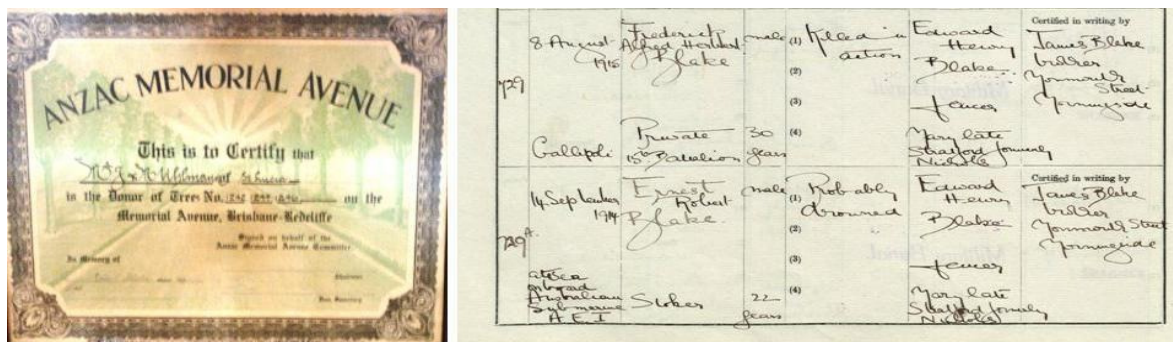 ANZAC MEMORIAL AVENUE
This is to Certify that
of St Lucia
is the Donor of Tree No. on the
Memorial Avenue, Brisbane-Redcliffe
Signed on behalf of the
Anzac Memorial Avenue Committee.
In Memory of
Chairman
Hon. Secretary
729
8 August
1915
Gallipoli
Frederick
Alfred Herbert
Blake
Private
15th Battalion
male
30
years
(1) Killed in
action
(2)
(3)
(4)
Edward
Henry
Blake
Fencer
Mary late
Stratford formerly
Nicholls
Certified in writing by
James Blake
brother
Street
Morningside
729A
14 September
1914
at sea
on board
Australian
Submarine
A.E.1
Ernest
Robert
Blake
Stoker
male
22
years
Probably
(1) drowned
(2)
(3)
(4)
Edward
Henry
Blake
Fencer
Mary late
Stratford formerly
Nicholls
Certified in writing by
James Blake
brother
Street
Morningside